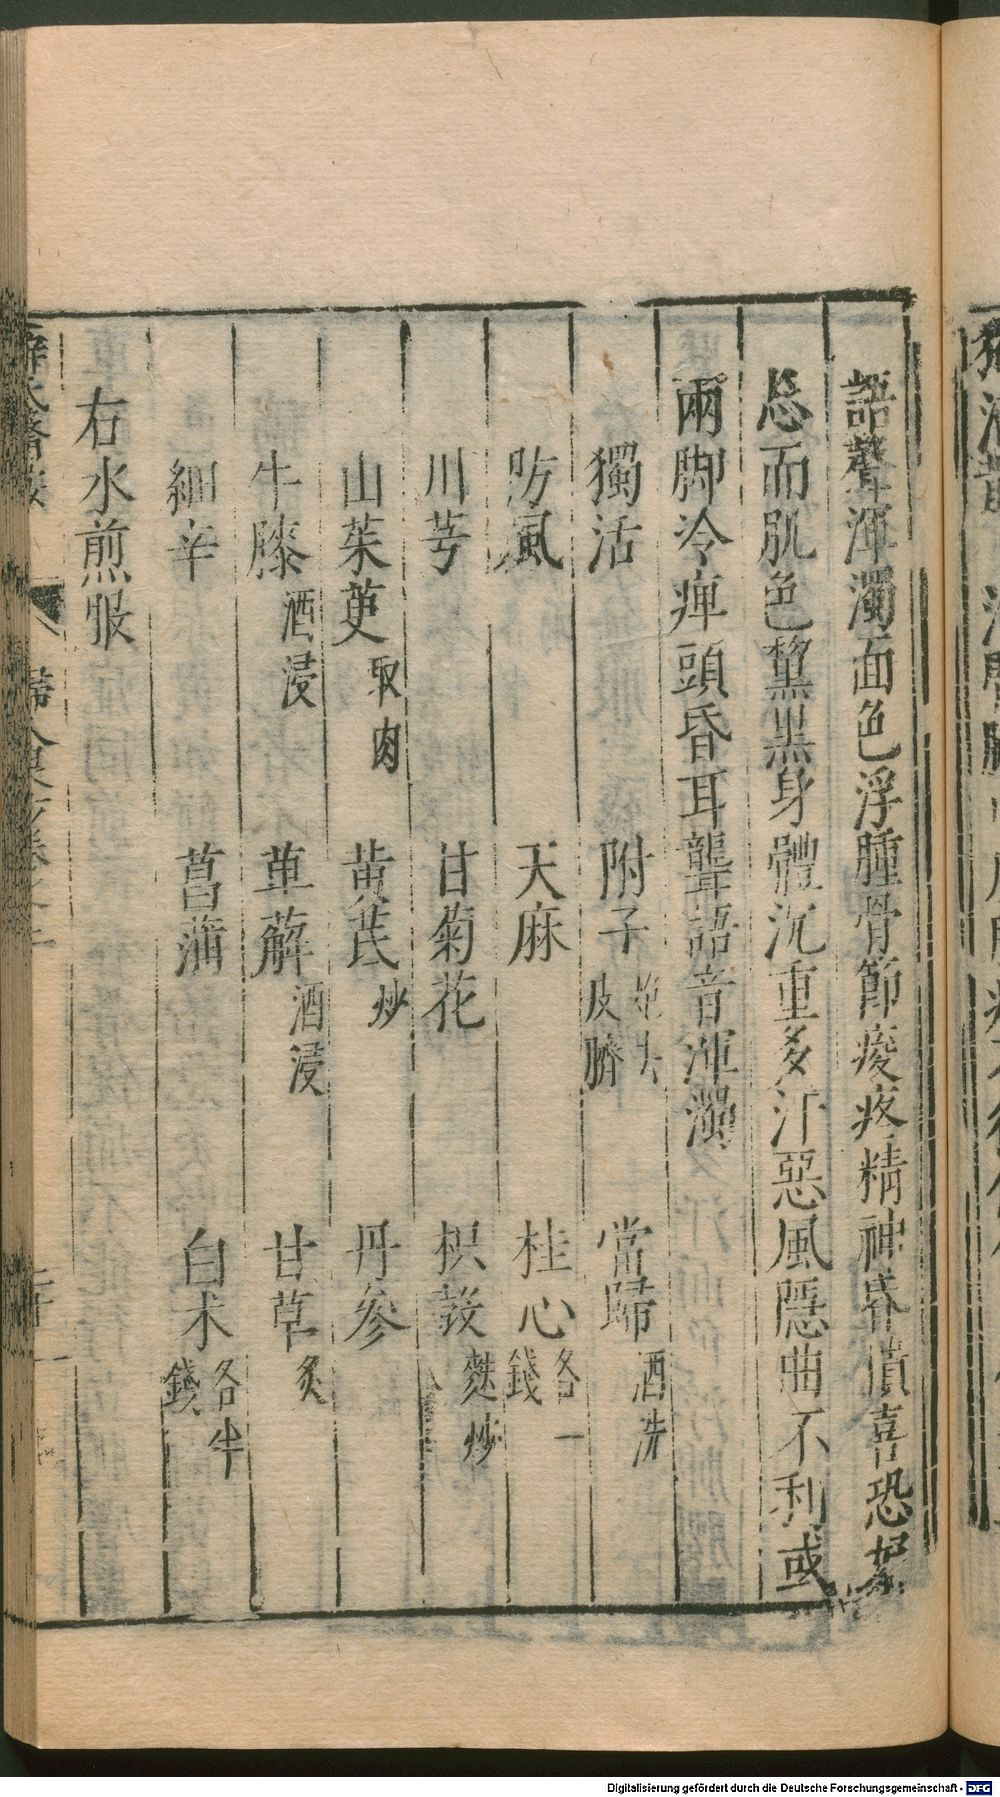 語聲渾濁面色浮腫骨節痠疼精神昏憒喜恐好
忘而肌色黧黑身體沉重多汗惡風隱曲不利或
兩脚冷痺頭昏耳聾語音渾濁
獨活 附子 炮去皮臍 當歸 酒洗
防風 天麻 桂心 各一錢
川芎 甘菊花 枳殼 麩炒
山茱萸 取肉 黃芪 炒 丹參
牛膝 酒浸 萆薢 酒浸 甘草 炙
細辛 菖蒲 白术 各半錢
右水煎服
Digitalisierung gefördert durch die Deutsche Forschungsgemeinschaft - DFG